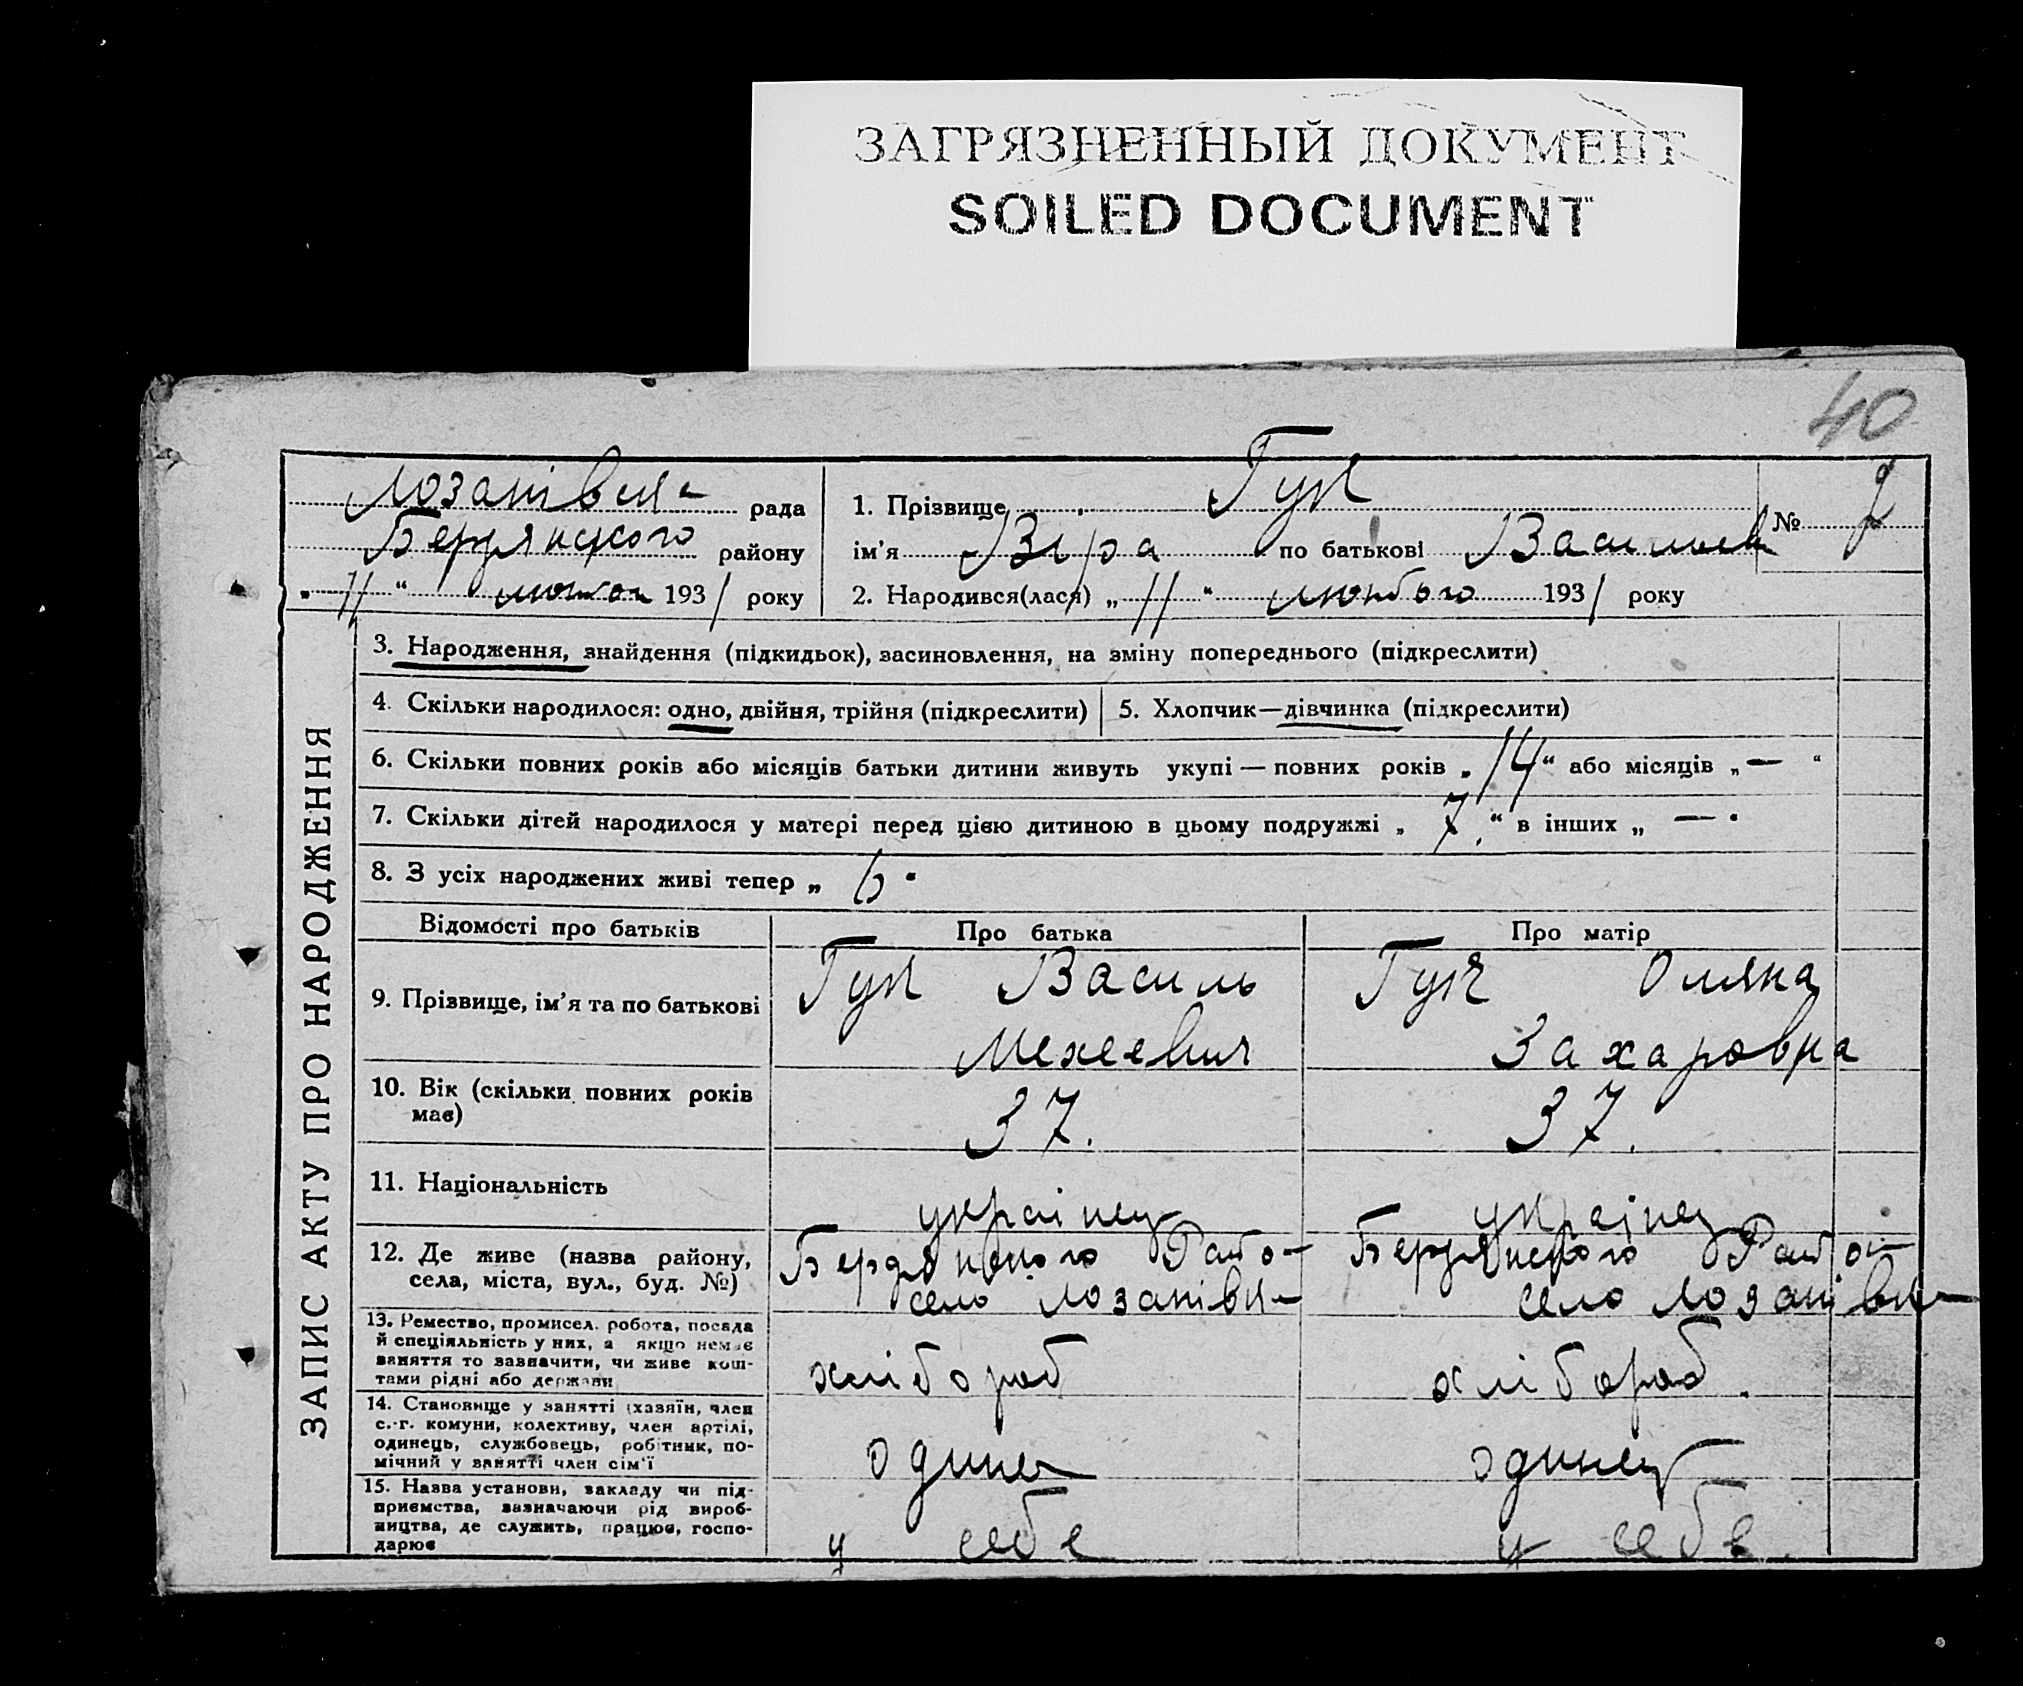 ЗАГРЯЗНЕННЫЙ ДОКУМЕНТ
SOILED DOCUMENT
40
ЗАПИС АКТУ ПРО НАРОДЖЕННЯ
Лозанівська рада
Бердянського району
„ 11 “ 1931 року
1. Прізвище Гук
ім'я Віра по батькові Васильев
№ 2
2. Народився(лася) „ 11 “ лютого 1931 року
3. Народження, знайдення (підкидьок), засиновлення, на зміну попереднього (підкреслити)
4. Скільки народилося: одно, двійня, трійня (підкреслити)
5. Хлопчик—дівчинка (підкреслити)
6. Скільки повних років або місяців батьки дитини живуть укупі — повних років „ 14 “ або місяців „ — “
7. Скільки дітей народилося у матері перед цією дитиною в цьому подружжі „ 7. “ в інших „ — “
8. З усіх народжених живі тепер „ 6 “
Відомості про батьків Про батька Про матір
9. Прізвище, ім'я та по батькові
Гук Василь
Гук Оляна
Захаровна
10. Вік (скільки повних років
має)
37.
37.
11. Національність
українец
українец
12. Де живе (назва району,
села, міста, вул., буд. №)
Бердянского Райо-
село Лозанівк-
Бердянского Райо-
село Лозанівк-
13. Ремество, промисел. робота, посада
й спеціяльність у них, а якщо немає
заняття то зазначити, чи живе кош-
тами рідні або держави
хлібороб
хлібороб.
14. Становище у занятті (хазяїн, член
с.-г. комуни, колективу, член артілі,
одинець, службовець, робітник, по-
мічний у занятті член сім'ї
одинец
одинец
15. Назва установи, закладу чи під-
приємства, зазначаючи рід вироб-
ництва, де служить, працює, госпо-
дарює
у себе
у себе.